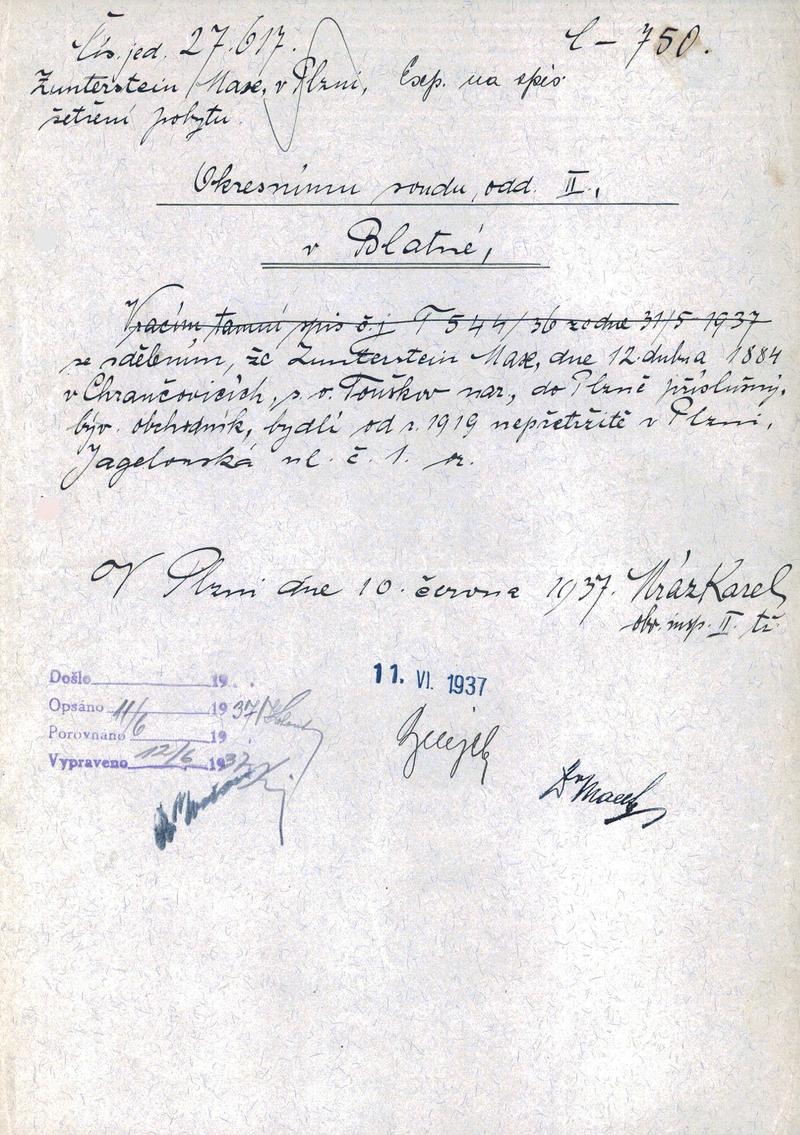 Čís. jed. 27.617. C – 750.
Zunterstein Max, v Plzni, Exp. na spis
šetření pobytu.
Okresnímu soudu, odd. II.,
v Blatné,
Vracím tamní spis č. j. T 544/36 ze dne 31/5 1937
se sdělením, že Zunterstein Max, dne 12. dubna 1884
v Chrančovicích, s. o. Touškov nar., do Plzně příslušný,
býv. obchodník, bydlí od r. 1919 nepřetržitě v Plzni,
Jagelonská ul. č. 1. or.
V Plzni dne 10. června 1937. Mráz Karel
obv. insp. II. tř.
Došlo 19
11. VI. 1937
Opsáno 11/6 1937
Porovnáno 19
Vypraveno 12/6 1937